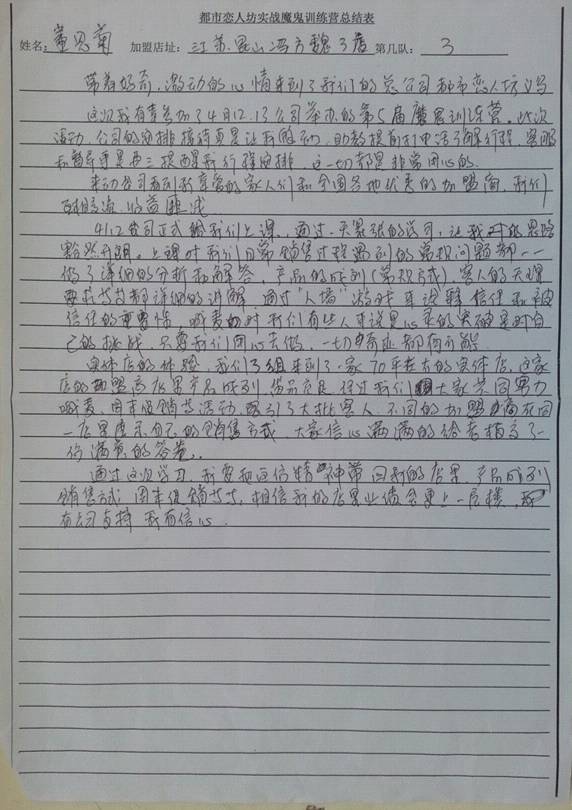 都市恋人坊实战魔鬼训练营总结表
姓名: 董见南 加盟店址: 江苏.昆山 店 第几队: 3
带着好奇,激动的心情来到了我们的总公司都市恋人坊义乌
这次我有幸参加了4月12.13公司举办的第5届魔鬼训练营。此次
活动,公司的安排接待真是让我感动,助教提前打电话了解行程,客服
和督导更是再三提醒我行程安排,这一切都是非常用心的。
来到公司看到我亲爱的家人们和全国各地优秀的加盟商,我们
交流.收益匪浅
4.12公司正式给我们上课,通过一天紧张的学习,让我对的思路
豁然开朗。上课时我们日常销售过程遇到的常规问题都一一
做了详细的分析和解答,产品的陈列(常规方式)客人的心理
都详细的讲解,通过"人墙"游戏来诠释信任和被
信任的重要性,喊麦的时我们有些人来说是心灵的突破是对自
己的挑战,只要我们用心去做,一切事都有可能
实体店的体验,我们3组来到了一家70平左右的实体店,这家
店的加盟商店里产品陈列,货品充足经过我们大家共同努力
喊麦,周末促销等活动,吸引了大批客人,不同的加盟商在同
一店里展示自不的销售方式,大家信心满满的给老板交了一
份满意的答卷..
通过这次学习,我要把这份精神带回我的店里,产品陈列
销售方式 周末促销等等,相信我的店里业绩会更上一层楼,
有公司支持 我有信心.